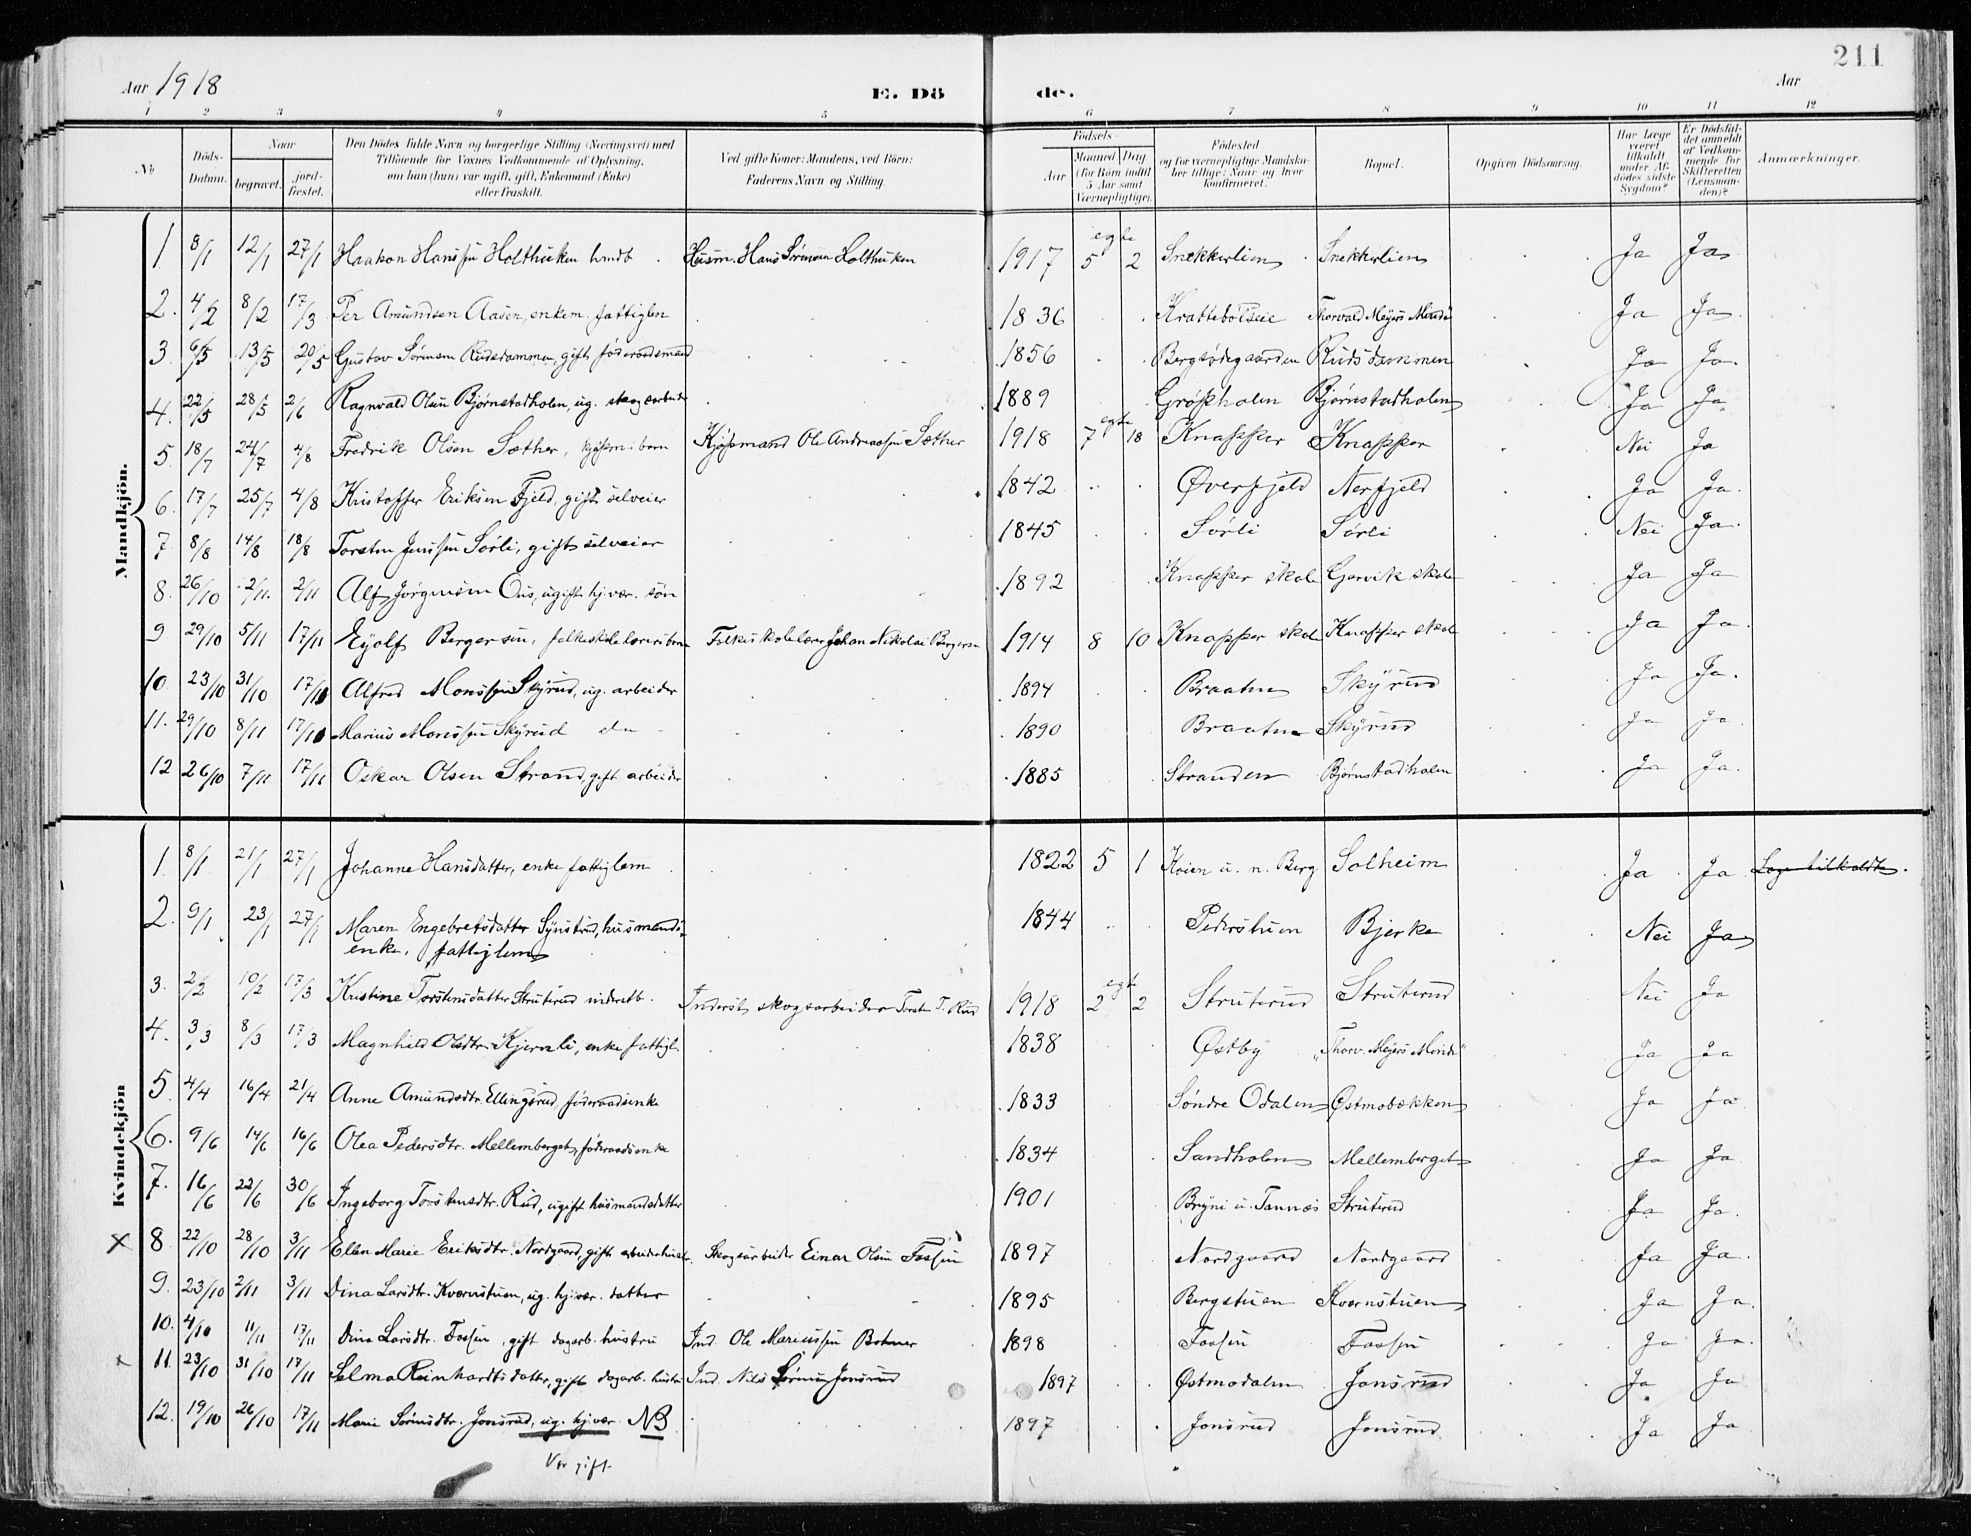 211
Aar 1918 E. Dö de. Aar
1 2 3 4 5 6 7 8 9 10 11 12
No Döds-Datum. Naar begravet. jord-fæstet. Den Dödes fulde Navn og borgerlige Stilling (Næringsvei) med Tilföiende for Voxnes Vedkommende af Oplysning, om han (hun) var ugift, gift, Enkemand (Enke) eller fraskilt. Ved gifte Koner: Mandens, ved Börn: Faderens Navn og Stilling. Födsels- Aar Maaned Dag (for Børn indtil 5 Aar samt Værnepligtige). Födested og for værnepligtige Mandskaber tillige: Naar og hvor konfirmeret. Bopæl. Opgiven Dödsaarsag. Har Læge været tilkaldt under Afdödes sidste Sygdom? Er Dödsfaldet anmeldt af Vedkommende for Skifteretten (Lensmanden)? Anmærkninger.
Mandkjön.
1 8/1 12/1 27/1 Haakon Hanssen Holthuken husm. Hans Sørensen Holthuken 1917 5 egte 2 Snekkerlien Snekkerlien Ja Ja
2. 4/2 8/2 17/3 Per Amundsen Aasen, enkem. fattiglem 1836 Thorvald Meyers Minde Ja Ja
3. 6/5 13/5 20/5 Gustav Sørensen Rudsdammen, gift føderaadsmand 1856 Bergsødegaarden Rudsdammen Ja Ja
4. 22/5 28/5 2/6 Ragnvald Olsen Bjørnstadholen, ug. skogsarbeider 1889 Bjørnstadholen Ja Ja
5. 18/7 24/7 4/8 Fredrik Olsen Sæther, kjøpm. barn Kjøpmand Ole Andreassen Sæther 1918 7 egte 18 Knapper Knapper Nei Ja
6. 17/7 25/7 4/8 Kristoffer Eriksen Fjeld, gift selveier 1842 Øverfjeld Nerfjeld Ja Ja
7. 8/8 14/8 18/8 Torsten Jenssen Sørli, gift selveier 1845 Sørli Sørli Nei Ja
8. 26/10 2/11 2/11 Alf Jørgensen Ous, ugift hj.vær. søn 1892 Knapper skole Gjervik skole Ja Ja
9 29/10 5/11 17/11 Eyolf Bergersen, folkeskolelærers barn Folkeskolelærer Johan Nikolai Bergersen 1914 8 10 Knapper skole Knapper skole Ja Ja
10 23/10 31/10 17/11 Alfred Monssen Skyrud, ug. arbeider 1894 Braaten Skyrud Ja Ja
11. 29/10 8/11 17/11 Marius Monssen Skyrud do 1890 Braaten Skyrud Ja Ja
12 26/10 7/11 17/11 Oskar Olsen Strand, gift arbeider 1885 Stranden Bjørnstadholen Ja Ja
Kvindekjön
1 8/1 21/1 27/1 Johanne Hansdatter, enke fattiglem 1822 5 1 Køien u. n. Berg Solheim Ja Ja Læge tilkaldt.
2. 9/1 23/1 27/1 Maren Engebretsdatter Synstrud, husmands- 1844 Pederstuen Bjerke Nei Ja
enke. fattiglem
3. 2/2 10/2 17/3 Kristine Torstensdatter Struterud inderstb. Inderst skogsarbeider Torsten T. Rud 1918 2 egte 2 Struterud Struterud Nei Ja
4. 3/3 8/3 17/3 Magnhild Olsdtr. Kjernli, enke fattigl. 1838 Østby "Thorv. Meyers Minde" Ja Ja
5 4/4 16/4 21/4 Anne Amundsdtr. Ellingsrud, føderaadsenke 1833 Søndre Odalen Østmobækken Ja Ja
6. 9/6 14/6 16/6 Olea Pedersdtr. Mellemberget, føderaadsenke 1834 Sandholen Mellemberget Ja Ja
7. 16/6 22/6 30/6 Ingeborg Torstensdtr. Rud, ugift husmandsdatter 1901 Bryni u. Tannæs Struterud Ja Ja
X 8 22/10 28/10 3/11 Ellen Marie Eriksdtr. Nordgaard, gift arbeiderhustr. Skogsarbeider Einar Olsen Fossen 1897 Nordgaard Nordgaard Ja Ja
9. 23/10 2/11 3/11 Dina Larsdtr. Kværnstuen, ug. hj.vær. datter 1895 Bergstuen Kværnstuen Ja Ja
10. 4/10 11/11 17/11 Dina Larsdtr. Fossen, gift dagarb. hustru Ind. Ole Mariussen 1898 Fossen Fossen Ja Ja
11. 23/10 31/10 17/11 Selma Reinhardtsdatter, gift dagarb. hustru Ind. Nils Sørensen Jonsrud 1897 Østmodalen Jonsrud Ja Ja
12. 19/10 26/10 17/11 Marie Sørensdtr. Jonsrud, ug. hj.vær. NB 1897 Jonsrud Jonsrud Ja Ja
Var gift